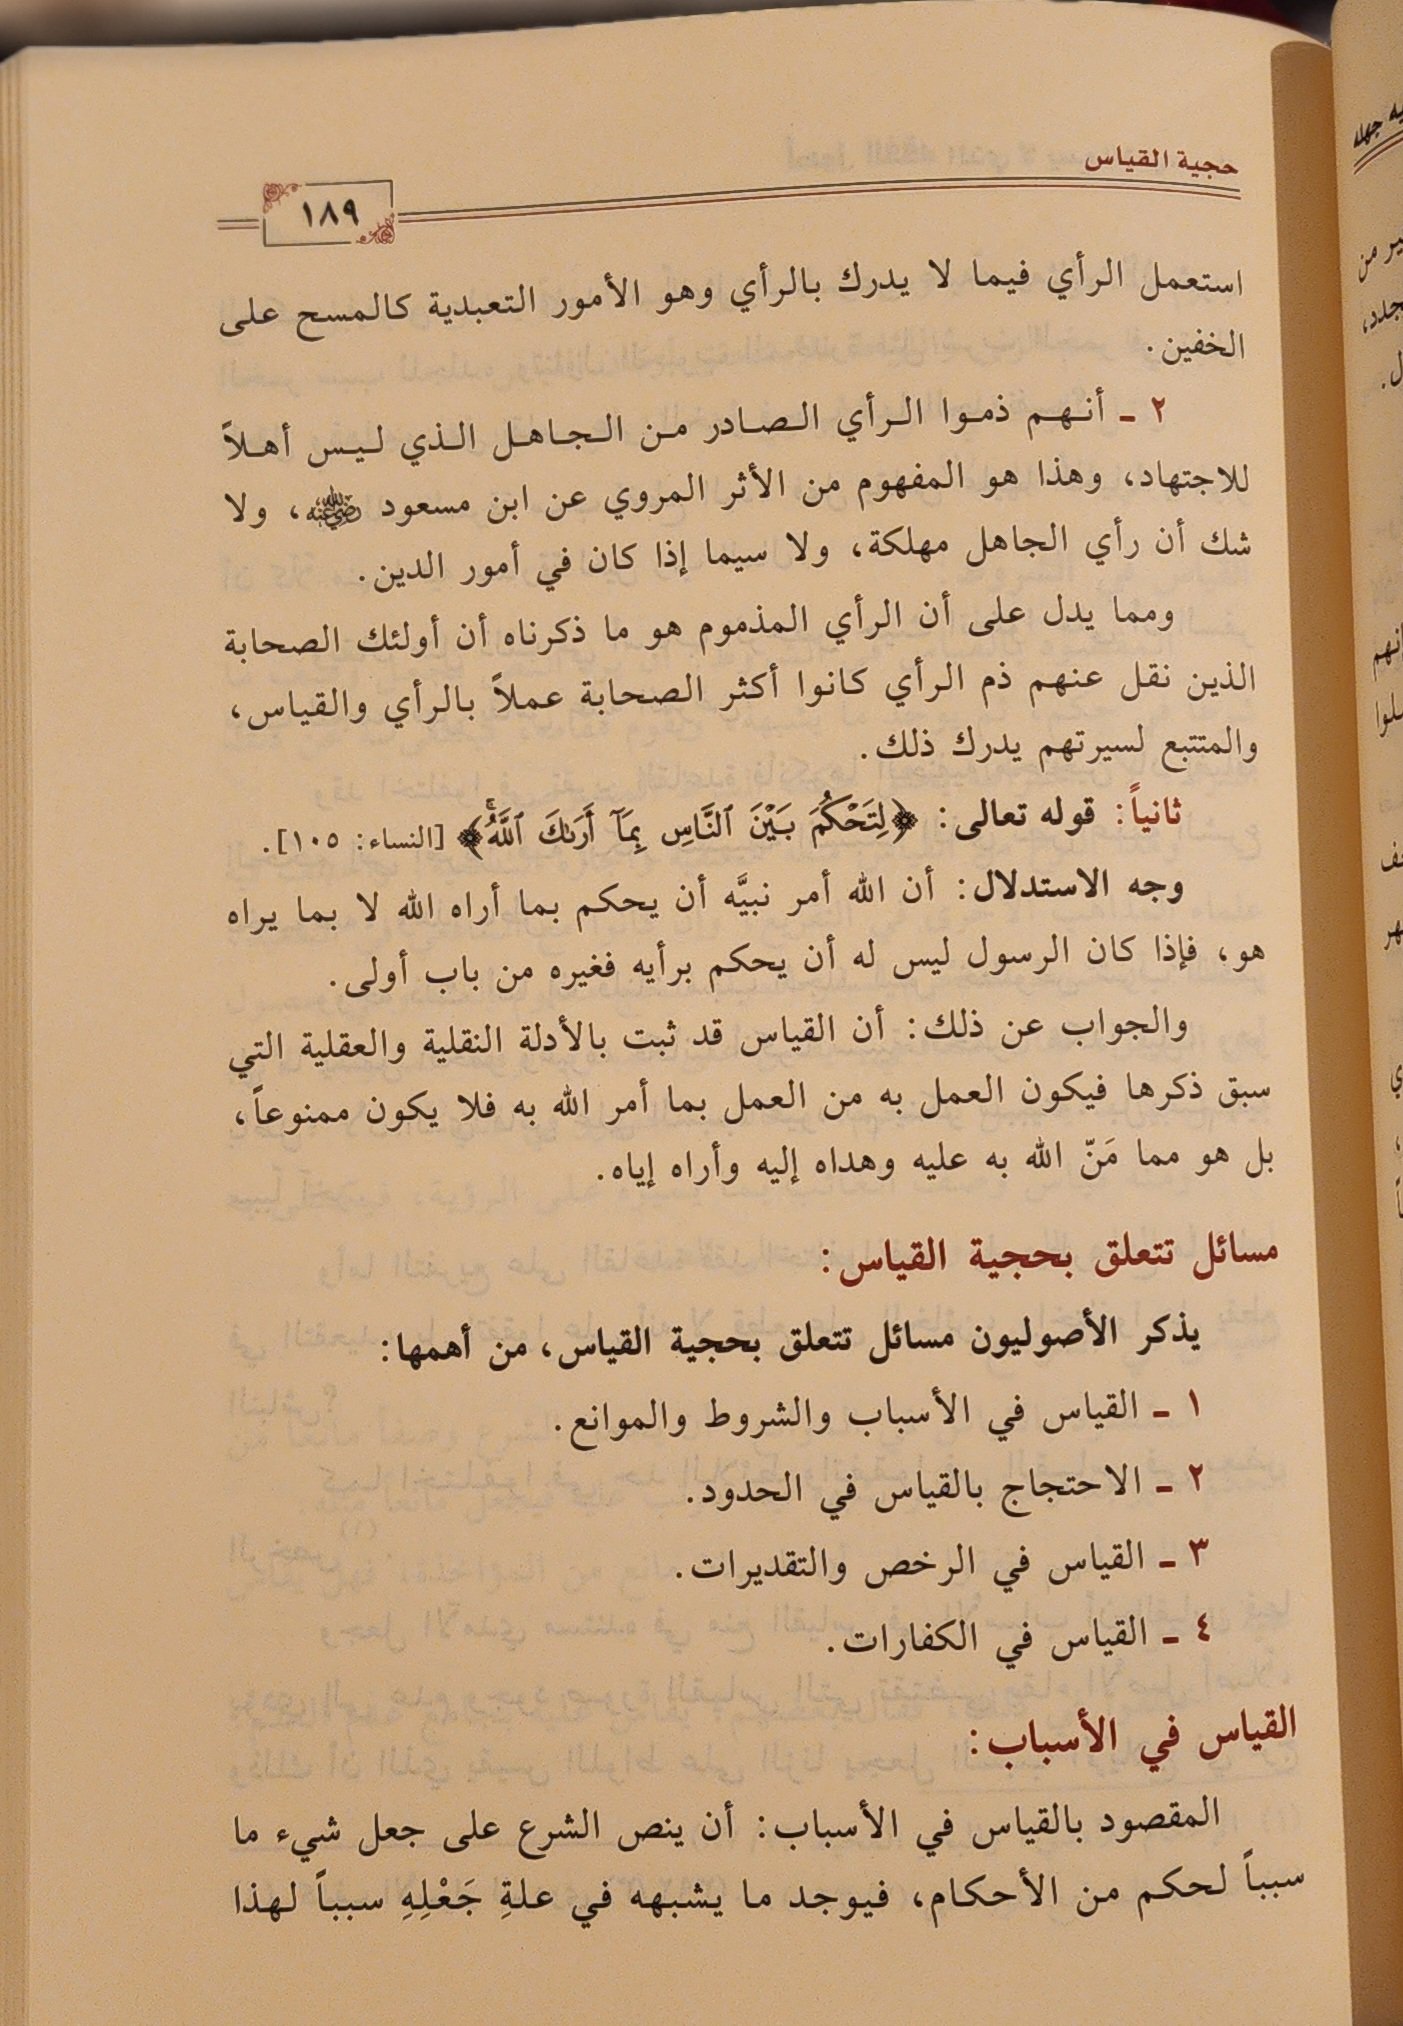 حجية القياس
١٨٩
استعمل الرأي فيما لا يدرك بالرأي وهو الأمور التعبدية كالمسح على
الخفين.
٢ ـ أنهم ذموا الرأي الصادر من الجاهل الذي ليس أهلاً
للاجتهاد، وهذا هو المفهوم من الأثر المروي عن ابن مسعود رضي الله عنه، ولا
شك أن رأي الجاهل مهلكة، ولا سيما إذا كان في أمور الدين.
ومما يدل على أن الرأي المذموم هو ما ذكرناه أن أولئك الصحابة
الذين نقل عنهم ذم الرأي كانوا أكثر الصحابة عملاً بالرأي والقياس،
والمتتبع لسيرتهم يدرك ذلك.
ثانياً: قوله تعالى: ﴿لِتَحْكُمَ بَيْنَ ٱلنَّاسِ بِمَآ أَرَىٰكَ ٱللَّهُۚ﴾ [النساء: ١٠٥].
وجه الاستدلال: أن الله أمر نبيَّه أن يحكم بما أراه الله لا بما يراه
هو، فإذا كان الرسول ليس له أن يحكم برأيه فغيره من باب أولى.
والجواب عن ذلك: أن القياس قد ثبت بالأدلة النقلية والعقلية التي
سبق ذكرها فيكون العمل به من العمل بما أمر الله به فلا يكون ممنوعاً،
بل هو مما مَنّ الله به عليه وهداه إليه وأراه إياه.
مسائل تتعلق بحجية القياس:
يذكر الأصوليون مسائل تتعلق بحجية القياس، من أهمها:
١ ـ القياس في الأسباب والشروط والموانع.
٢ ـ الاحتجاج بالقياس في الحدود.
٣ ـ القياس في الرخص والتقديرات.
٤ ـ القياس في الكفارات.
القياس في الأسباب:
المقصود بالقياس في الأسباب: أن ينص الشرع على جعل شيء ما
سبباً لحكم من الأحكام، فيوجد ما يشبهه في علةِ جَعْلِهِ سبباً لهذا